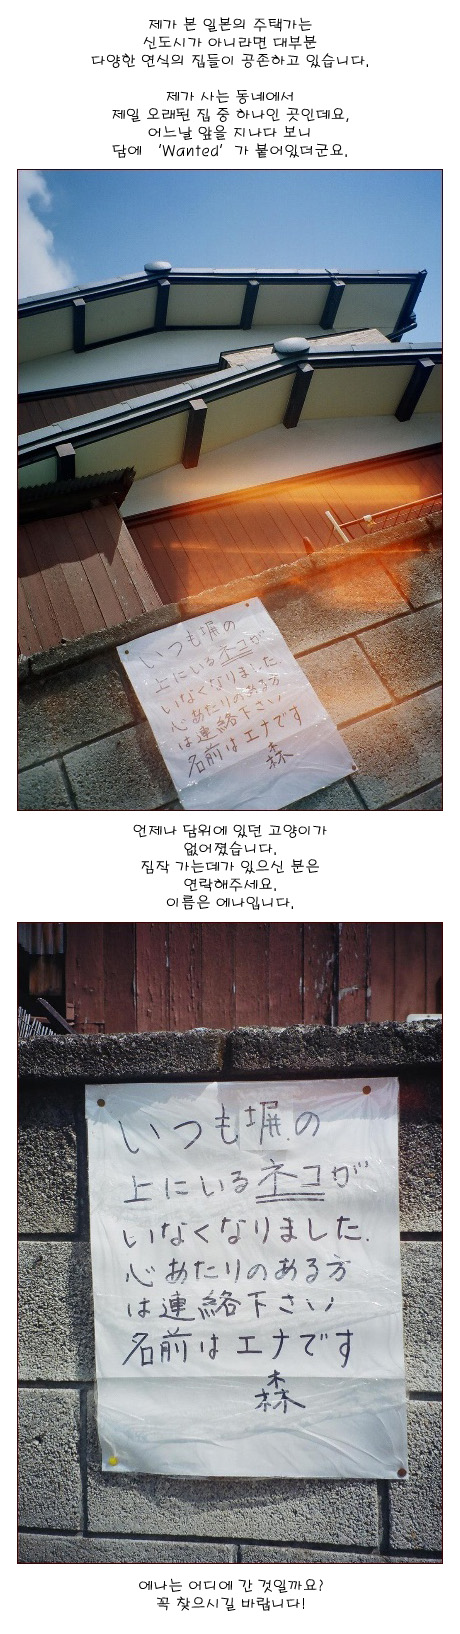 제가 본 일본의 주택가는
신도시가 아니라면 대부분
다양한 연식의 집들이 공존하고 있습니다.
제가 사는 동네에서
제일 오래된 집 중 하나인 곳인데요,
어느날 앞을 지나다 보니
담에 ‘Wanted’가 붙어있더군요.
いつも塀の
上にいるネコが
いなくなりました.
心あたりのある方
は連絡下さい
名前はエナです
森
언제나 담위에 있던 고양이가
없어졌습니다.
짐작 가는데가 있으신 분은
연락해주세요.
이름은 에나입니다.
いつも塀の
上にいるネコが
いなくなりました.
心あたりのある方
は連絡下さい
名前はエナです
森
에나는 어디에 간 것일까요?
꼭 찾으시길 바랍니다!